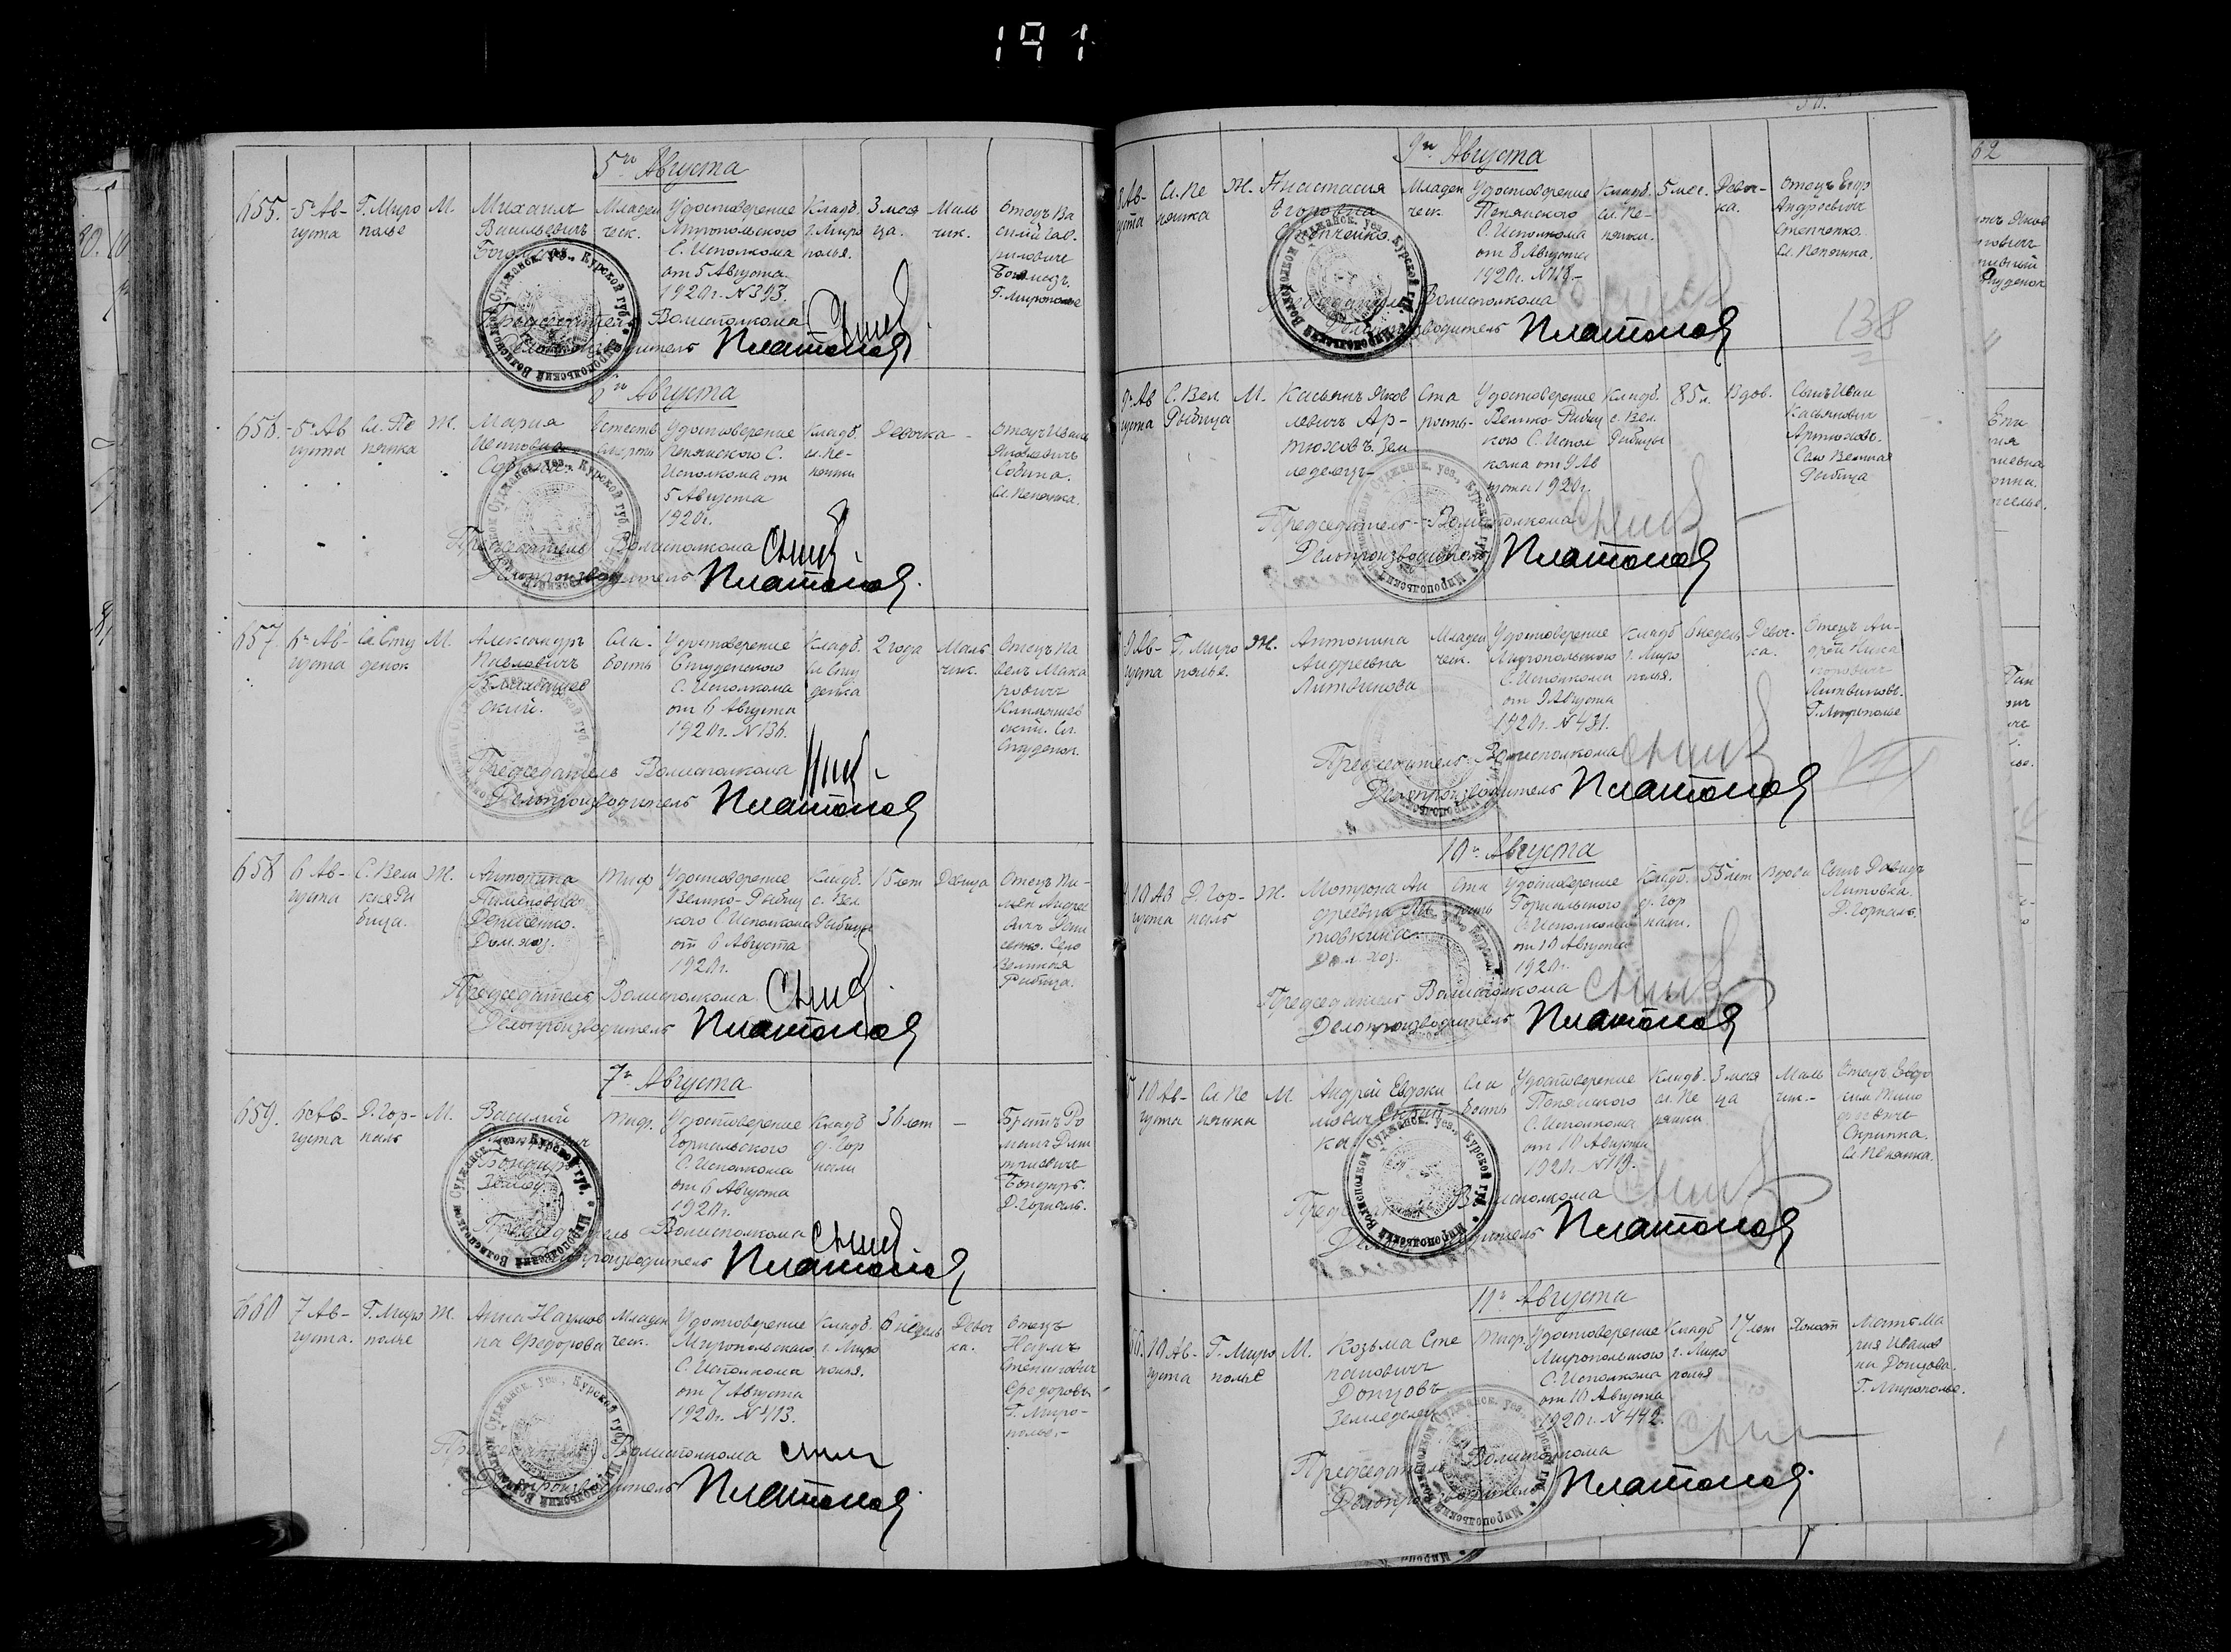 191
5го Августа
655. 5го Ав-густа Г. Миро полье М. Михаилъ Васильевичъ Младен ческ. Удостоверение Миропольского С. Исполкома от 5 Августа 1920 г. N 393. Кладб. г. Миро полья. 3 меся ца. Маль чик. Отецъ Ва силий Гав-риловичъ Г. Мирополье
Председатель Волисполкома
Делопроизводитель Платонов
6го Августа
656. 5го Ав густа Сл. Пе нянка Ж. Мария Ивановна Естеств. смерть Удостоверение Пенянского С. Исполкома от 5 Августа 1920 г. Кладб. сл. Пе-нянки Девочка - Отецъ Иванъ Яковлевичъ Собина. Сл. Пенянка.
Председатель Волисполкома
Делопроизводитель Платонов
657. 6го Ав-густа Сл. Сту денок М. Александръ Павловичъ Климашев ский. Сла-бость Удостоверение Студенского С. Исполкома от 6 Августа 1920 г. N 136. Кладб. сл. Сту денка 2 года Маль чик. Отецъ Па велъ Мака ровичъ Климашев ский. Сл. Студенок.
Председатель Волисполкома
Делопроизводитель Платонов
658 6 Ав-густа С. Вели кая Ры бица. Ж. Антонина Пименовна Денисенко. Дом. хоз. Тиф Удостоверение Велико-Рыбиц кого С. Исполкома от 6 Августа 1920 г. Кладб. с. Вел. Рыбицы 15 лет Девица Отецъ Пи-менъ Андре евичъ Дени сенко. Село Великая Рыбица.
Председатель Волисполкома
Делопроизводитель Платонов
7го Августа
659. 6го Ав-густа Д. Гор-наль М. Василий Бондарь Землед. Тиф. Удостоверение Горнальского С. Исполкома от 6 Августа 1920 г. Кладб. д. Гор нали 36 лет - Братъ Ро манъ Дми триевичъ Бондарь. Д. Горналь.
Председатель Волисполкома
Делопроизводитель Платонов
660 7 Ав-густа. Г. Миро полье Ж. Анна Наумов на Федорова Младен ческ. Удостоверение Миропольского С. Исполкома от 7 Августа 1920 г. N 413. Кладб. г. Миро полья. 6 недель Девоч ка. Отецъ Наумъ Степановичъ Федоровъ Г. Миро-полье.
Председатель Волисполкома
Делопроизводитель Платонов
9го Августа
8 Ав-густа Сл. Пе нянка Ж. Анастасия Егоровна Степченко. Младен ческ. Удостоверение Пенянского С. Исполкома от 8 Августа 1920 г. Кладб. сл. Пе-нянки. 5 мес. Девоч-ка. Отецъ Егор Андреевич Степченко. Сл. Пенянка.
138
Волисполкома
Делопроизводитель Платонов
9го Ав густа С. Вел Рыбица М. Касьянъ Яков левичъ Ар-тюховъ. Зем леделецъ Ста рость Удостоверение Велико-Рыбиц кого С. Испол кома от 9 Ав густа 1920 г. Кладб. с. Вел. Рыбицы 85 л. Вдов. Сынъ Иван Касьянович Артюховъ. Село Великая Рыбица
Председатель Волисполкома
Делопроизводитель Платонов
9 Ав-густа Г. Миро полье. Ж. Антонина Андреевна Литвинова Младен ческ. Удостоверение Миропольского С. Исполкома от 9 Августа 1920 г. N 431. Кладб. г. Миро полья. 6 недель Девоч-ка. Отецъ Ан-дрей Ника норовичъ Литвиновъ. Г. Мирополье
Председатель Волисполкома
Делопроизводитель Платонов
10го Августа
10 Ав густа Д. Гор-наль Ж. Мотрона Ан дреевна Ли товкина. Дом. хоз. Ста рость Удостоверение Горнальского С. Исполкома от 10 Августа 1920 г. Кладб. д. Гор нали. 55 лет Вдова Сынъ Давидъ Литовка. Д. Горналь.
Председатель Волисполкома
Делопроизводитель Платонов
10 Ав-густа Сл. Пе нянка М. Андрей Евдоки мович Скрип-ка Сла бость Удостоверение Пенянского С. Исполкома от 10 Августа 1920 г. N 119. Кладб. сл. Пе нянки 3 меся ца Маль чик. - Отецъ Евдо ким Скрипка. Сл. Пенянка.
Волисполкома
Платонов
11го Августа
10 Ав-густа Г. Миро полье М. Козьма Сте пановичъ Донцовъ Земледелец Тиф. Удостоверение Миропольского С. Исполкома от 10 Августа 1920 г. N 442. Кладб г. Миро полья 17 лет Холост Мать Ма рия Иванов на Донцова. Г. Мирополье.
Председатель Волисполкома
Делопроизводитель Платонов
62
Миропольский Волисполком Суджанск. уез., Курской губ.